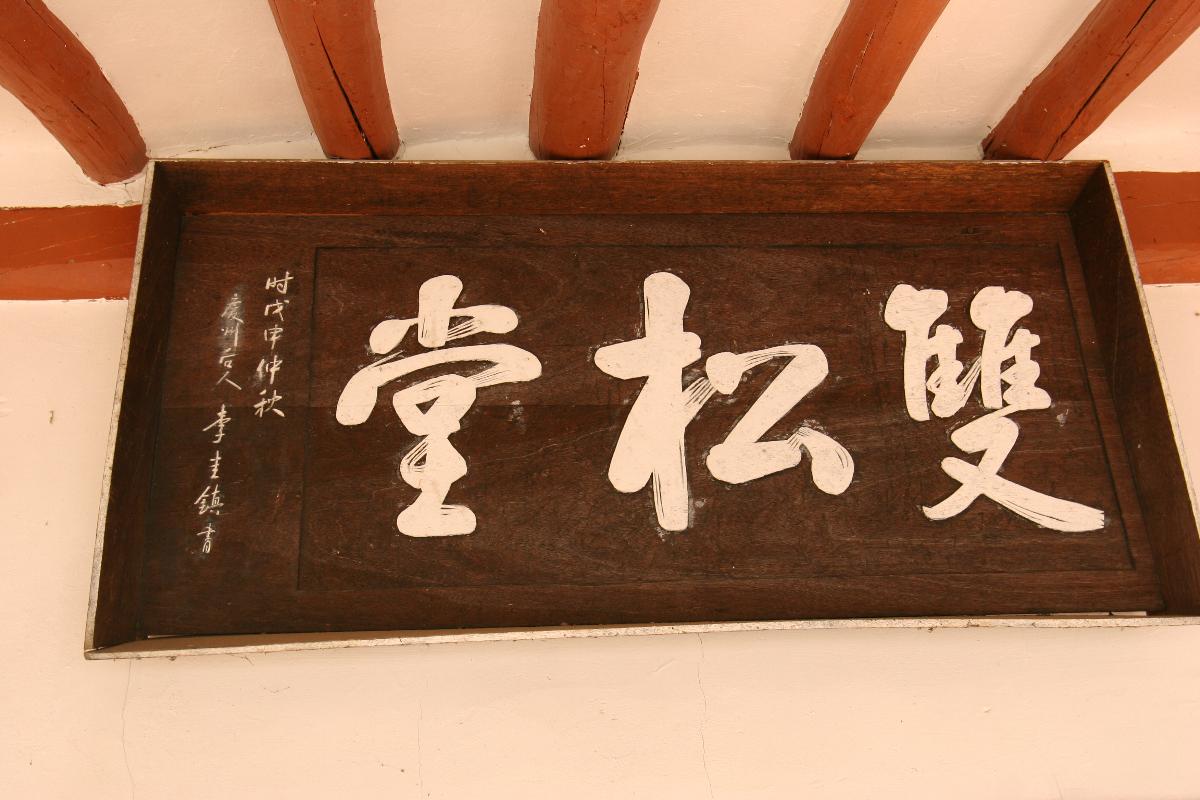 雙松堂
时戊申仲秋
慶州后人 李圭鎮書